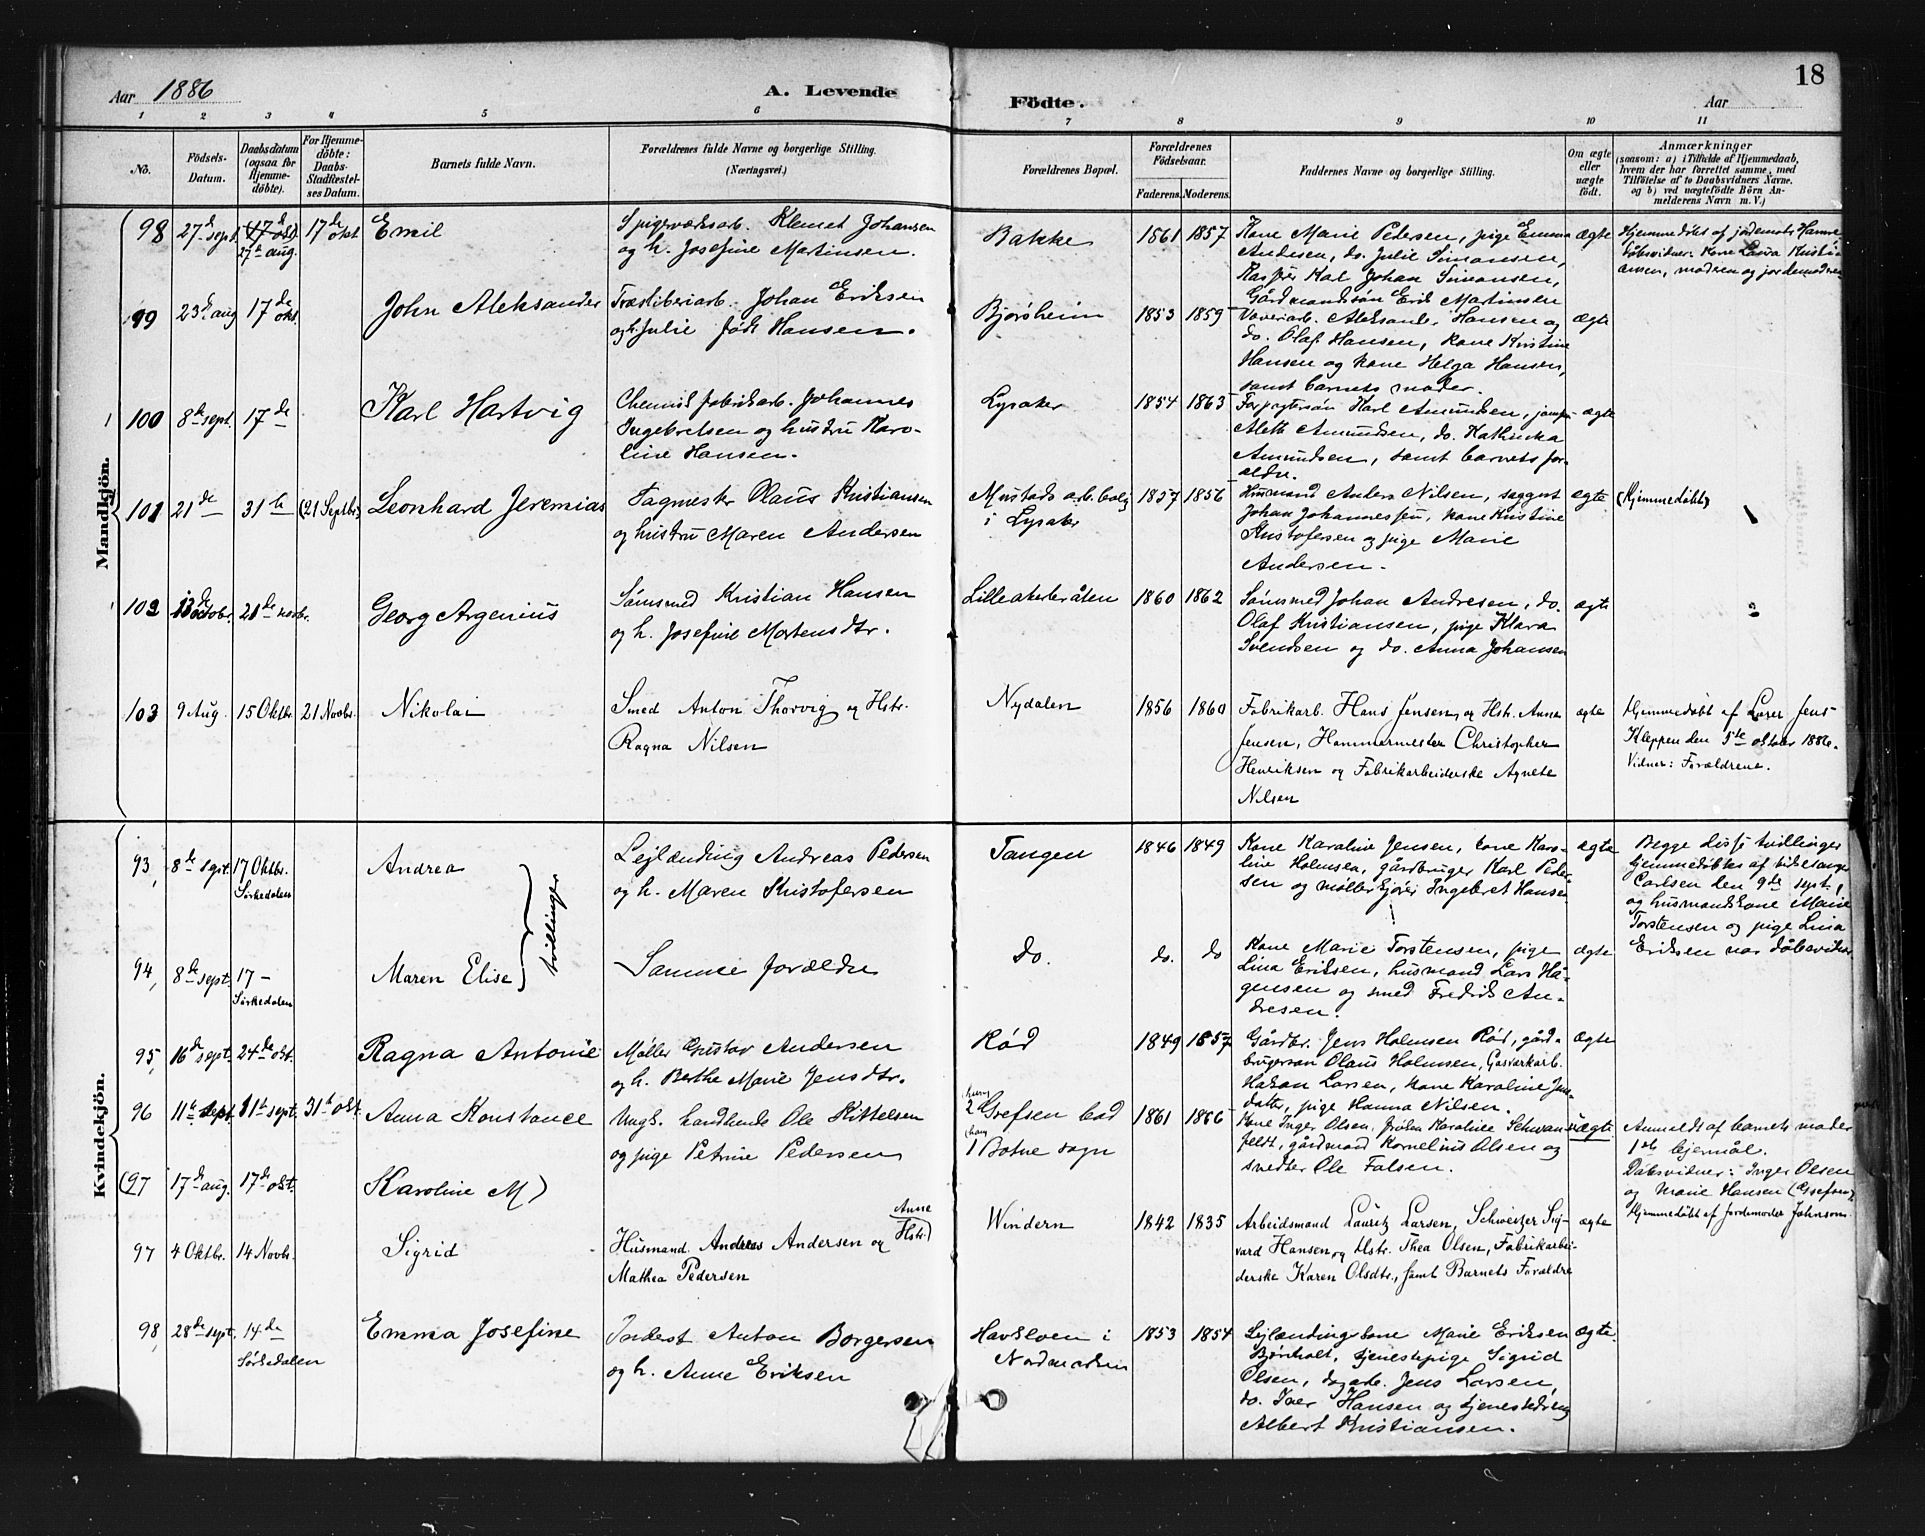 Aar 1886
A. Levende
Födte.
Aar
18
1 2 3 4 5 6 7 8 9 10 11
No.
Födsels-
Datum.
Daabsdatum
(ogsaa for
Hjemme-
döbte).
For Hjemme-
döbte:
Daabs-
Stadfæstel-
ses Datum.
Barnets fulde Navn.
Forældrenes fulde Navne og borgerlige Stilling.
(Næringsvei.)
Forældrenes Bopæl.
Forældrenes
Födselsaar.
Faderens. Moderens.
Faddernes Navne og borgerlige Stilling.
Om ægte
eller
uægte
födt.
Anmærkninger
(saasom: a) i Tilfælde af Hjemmedaab,
hvem der har forrettet samme, med
Tilföielse af to Daabsvidners Navne.
og b) ved uægtefödte Börn An-
melderens Navn m. V.)
Mandkjön.
98 27de sept. 17de okt. 27de aug. 17de okt. Emil
Spigerværksarb. Klemet Johansen
og h. Josefine Martinsen.
Bakke 1861 1857
Kone Marie Pedersen, pige Emma
Andersen, do. Julie Simonsen,
Karl Johan Simonsen,
Gårdmandssøn Erik Martinsen
ægte
Hjemmedøbt af jordemoder
døbsvidner: Kone Laura Kristi-
ansen, moderen og jordemoderen
99 23de aug 17de okt. John Aleksander
Træsliberiarb. Johan Eriksen
og h. Julie født Hansen.
Bjørsheim 1853 1859
Væveriarb. Aleksander Hansen og
do. Olaf Hansen, kone Kristine
Hansen og kone Helga Hansen,
samt barnets moder.
ægte
100 8de sept. 17de Karl Hartvig
Chemisk fabrikarb. Johannes
Ingebretsen og hustru Karo-
line Hansen.
Lysaker 1854 1863
Forpagtersøn Karl Amundsen, jomfru
Aleth Amundsen, do. Kathinka
Amundsen, samt barnets for-
ældre.
ægte
101 21de 31te (21 Septbr) Leonhard Jeremias
Fagmester Olaus Kristiansen
og hustru Maren Andersen
Mustads arb. bolig
i Lysaker
1857 1856
Husmand Anders Nilsen, saggut
Johan Johannessen, kone Kristine
Kristofersen og pige Marie
Andersen.
ægte (Hjemmedøbt)
102 13de oktobr. 21de novbr. Georg Argenius
Sømsmed Kristian Hansen
og h. Josefine Mortensdtr.
Lilleakerbråten 1860 1862
Sømsmed Johan Andresen, do.
Olaf Kristiansen, pige Klara
Svendsen og do. Anna Johansen
ægte
103 9 Aug. 15 Oktbr. 21 Novbr. Nikolai
Smed Anton Thorvig og Hstr.
Ragna Nilsen
Nydalen 1856 1860
Fabrikarb. Hans Jensen og Hstr. Anne
Jensen, Hammermester Christopher
Henriksen og Fabrikarbeiderske Agnete
Nilsen
ægte
Hjemmedøbt af Lærer Jens
Kleppen den 5te oktober 1886.
Vidner: Forældrene.
Kvindekjön.
93, 8de sept. 17 Oktbr. Sørkedalen Andrea
tvillinger
Lejlænding Andreas Pedersen
og h. Maren Kristofersen
Tangen 1846 1849
Kone Karoline Jensen, kone Karo-
line Holmsen, gårdbruger Karl Peder-
sen og møllerkjører Ingebret Hansen
ægte
Begge disse tvillinger
hjemmedøbtes af kirkesanger
Carlsen den 9de sept.,
og husmandskone Marie
Torstensen og pige Lina
Eriksen var døbsvidner
94, 8de sept. 17 – Sørkedalen Maren Elise
Samme forældre
do. do. do
Kone Marie Torstensen, pige
Lina Eriksen, husmand Lars Hå-
gensen og smed Fredrik An-
dresen.
ægte
95, 16de sept. 24de okt. Ragna Antonie
Møller Gustav Andersen
og h. Berthe Marie Jensdtr.
Rød 1849 1857
Gårdbr. Jens Holmsen Rød, gård-
brugersøn Olaus Holmsen, Gasværkarb.
Håkan Larsen, kone Karoline Jens-
datter, pige Hanna Nilsen.
ægte
96 11te sept. 11te sept. 31te okt. Anna Konstance
Ungk. handlende Ole Kittelsen
og pige Petrine Pedersen
(hun) 2 Grefsen bad
(han) 1 Botne sogn
1861 1866
Kone Inger Olsen, frøken Karoline Schwans-
feldt, gårdmand Kornelius Olsen og
snedker Ole Falsen.
uægte.
Anmeldt af barnets moder
1ste lejermål.
Dåbsvidner: Inger Olsen
og Marie Hansen (Grefsen),
Hjemmedøbt af Jordemoder Johnson.
(97 17de aug. 17de okt. Karoline M)
97 4 Oktbr. 14 Novbr. Sigrid
Husmand Andreas Andersen og Hstr. Anne
Mathea Pedersen
Windern 1842 1835
Arbeidsmand Lauritz Larsen, Schweitzer Sig-
vard Hansen og Hstr. Thea Olsen, Fabrikarbei-
derske Karen Olsdtr., samt Barnets Forældre
ægte
98, 28de sept. 14de Sørkedalen Emma Josefine
Inderst Anton Borgersen
og h. Anne Eriksen
Havkloven i
Nordmarken
1853 1854
Lejlændingskone Marie Eriksen
Bjørnholt, tjenestepige Sigrid
Olsen, dagarb. Jens Larsen,
do. Iver Hansen og tjenestedreng
Albert Kristiansen.
ægte.